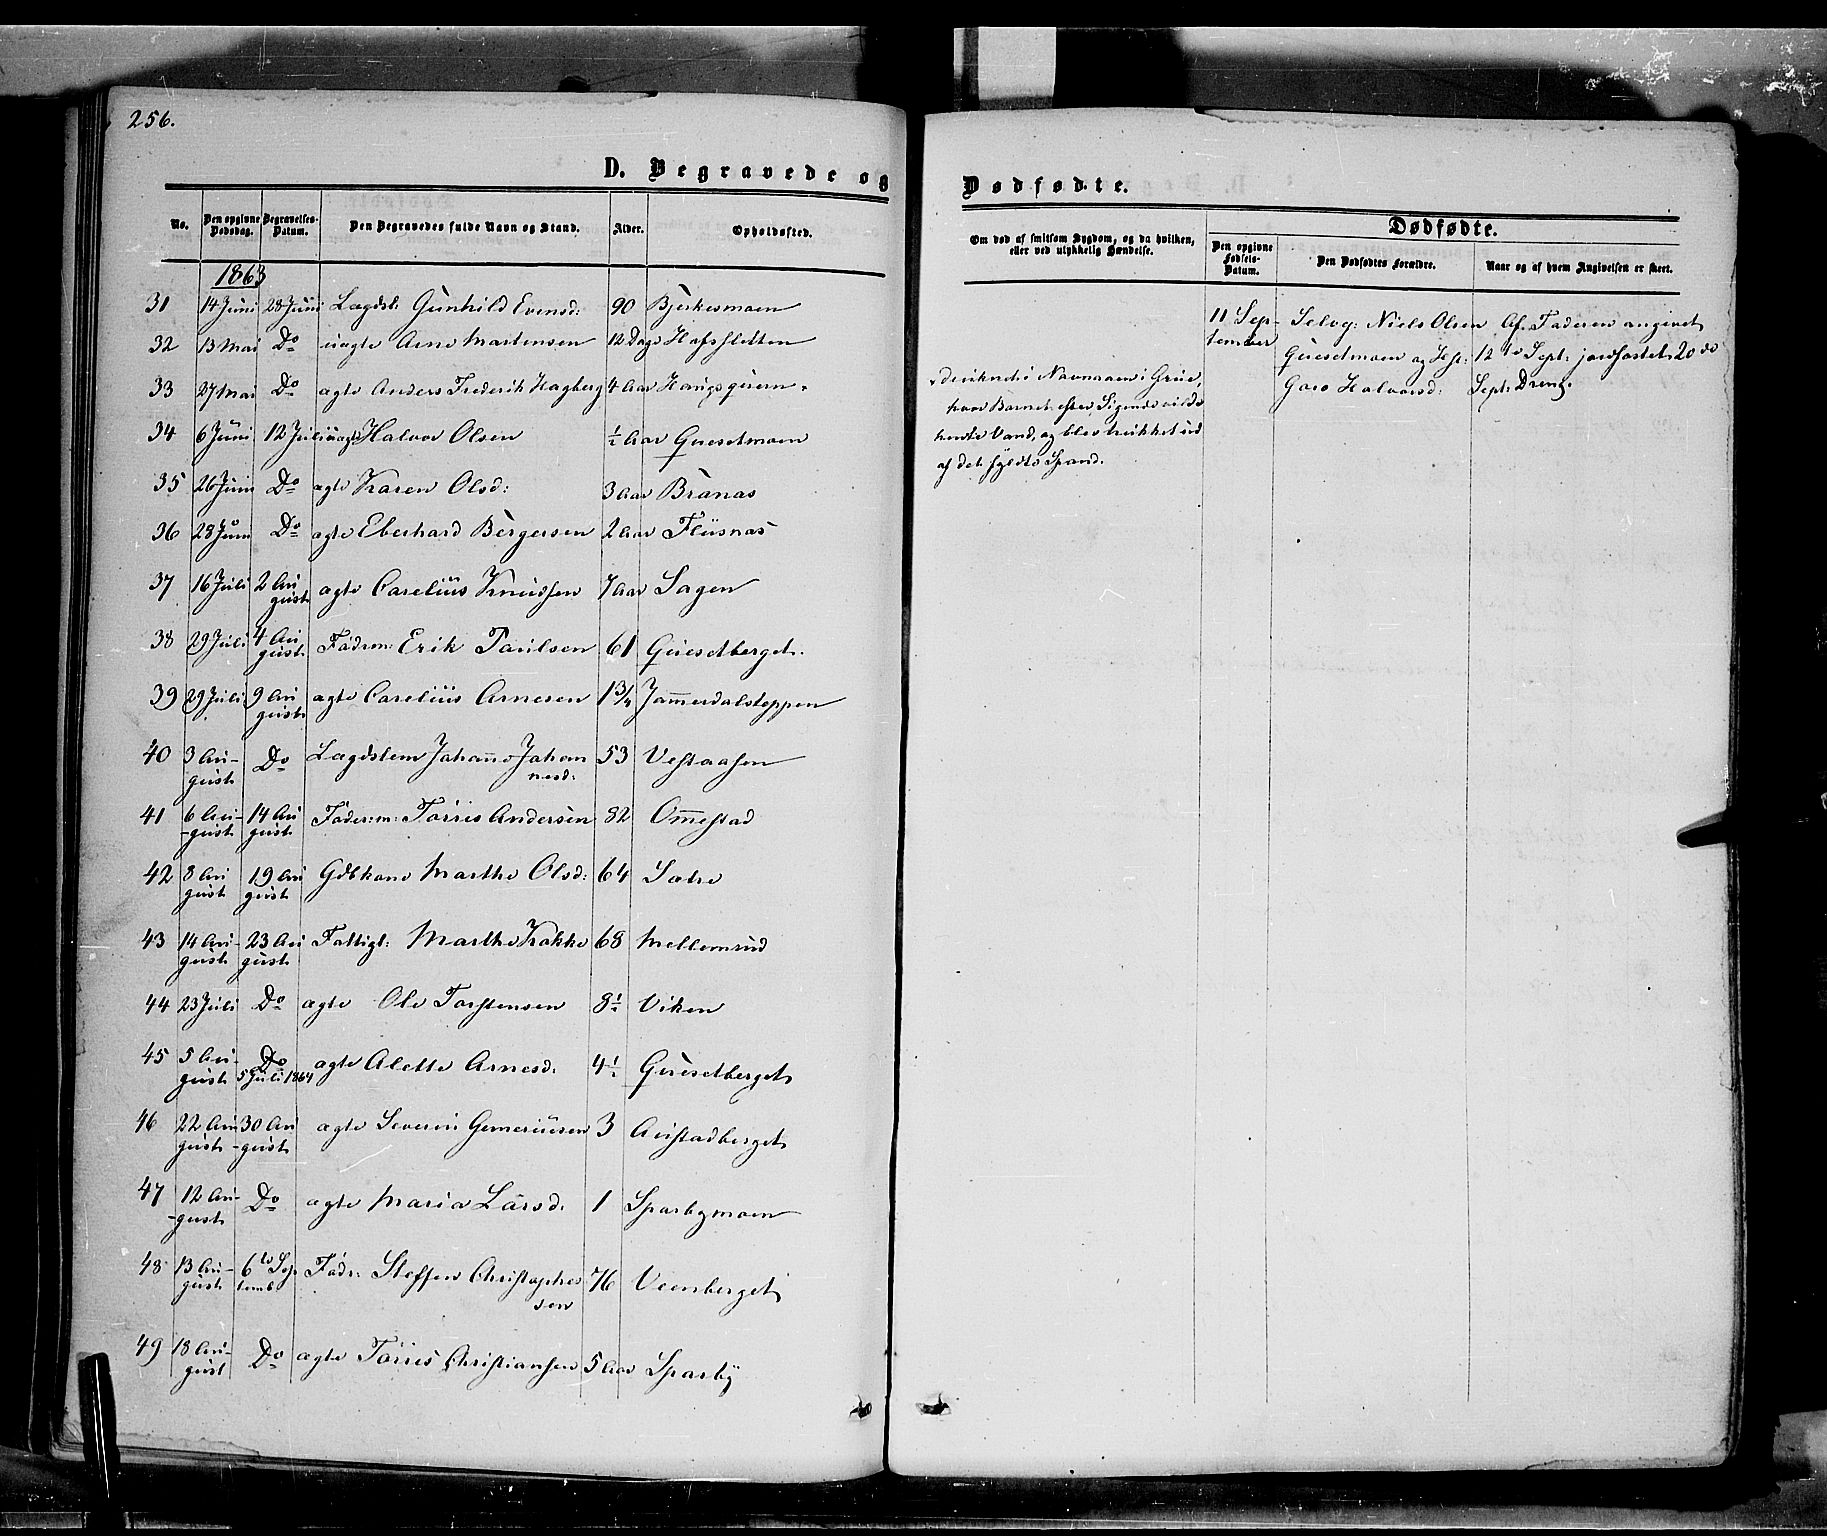 256.
D. Begravede og
No. Den opgivne Dødsdag. Begravelses-Datum. Den Begravedes fulde Navn og Stand. Alder. Opholdssted.
1863
31 14 Juni 28 Juni Lægdsl: Gunhild Evensd: 90 Bjerkesmoen
32 13 Mai Do uægte Arne Martensen 12 Dage Hafsletten
33 27 Mai Do ægte Anders Frederik Hagberg 4 Aar
34 6 Juni 12 Juli uægte Halvor Olsen ½ Aar Guesetmoen
35 26 Juni Do ægte Karen Olsd: 3 Aar Brānas
36 28 Juni Do ægte Eberhard Bergersen 2 Aar Flisnas
37 16 Juli 2 August ægte Carelius Knudsen 7 Aar Sagen
38 29 Juli 4 August Føderm: Erik Paulsen 61 Guesetberget
39 29 Juli 9 August ægte Carelius Arnesen 1¾ Jam̄erdalstoppen
40 3 August Do Lægdslem Johan̄e Johan
nesd:
41 6 August 14 August Føderm: Tørris Andersen 82 Om̄estad
42 8 August 19 August Gdbkone Marthe Olsd: 64 Sætre
43 14 August 23 August Fattigl: Marthe Kokko 68 Mellemrud
44 23 Juli Do ægte Ole Torstensen 8½ Viken
45 5 August Do ægte Alette Arnesd: 4½ Guesetberget
5 Juli 1864
46 22 August 30 August ægte Severin Gunneriusen 3 Austadberget
47 12 August Do ægte Maria Larsd: 1 Sparbymoen
48 13 August 6te Septemb Føder: Steffen Christophersen 76 Veenberget
49 18 August Do ægte Tørris Christiansen 5 Aar Sparby
Dødfødte.
Om død af smitsom Sygdom, og da hvilken, eller ved ulykkelig Hændelse.
Dødfødte.
Den opgivne Fødsels-Datum. Den Dødfødtes Forældre. Naar og af hvem Angivelsen er skeet.
11 September Selvg: Niels Olsen Af Faderen angivet
Guesetmoen og Hst: 12te Sept: jordfæstet 20de
Goro Halvorsd: Sept: Dreng.
druknet i Navnaaen i Grue,
hvor Barnet efter Sigende vilde
hente Vand, og blev trukket ud
af det fyldte Spand.